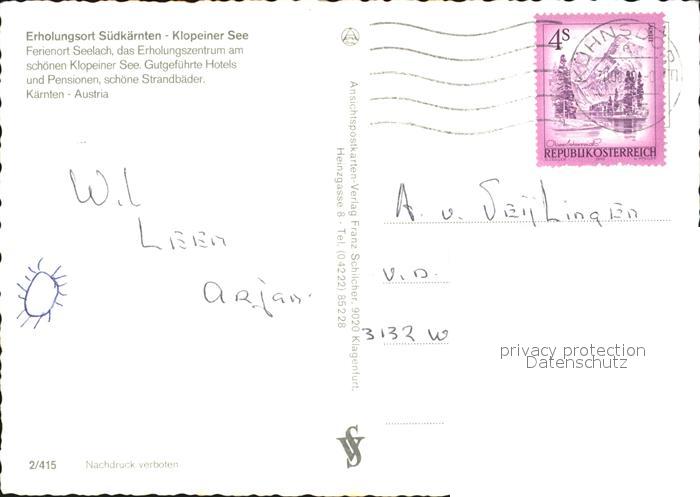 Erholungsort Südkärnten - Klopeiner See
Ferienort Seelach, das Erholungszentrum am
schönen Klopeiner See. Gutgeführte Hotels
und Pensionen, schöne Strandbäder.
Kärnten - Austria
Wil
Leen
Arjan.
2/415 Nachdruck verboten
Ansichtspostkarten-Verlag Franz Schilcher, 9020 Klagenfurt,
Heinzgasse 8 - Tel. (04222) 85228
4S
REPUBLIK ÖSTERREICH
KÜHNSDORF
A. v.
v.d.
3132 W
privacy protection
Datenschutz